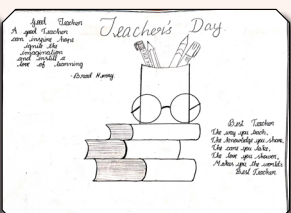 Good Teacher
A good Teacher
can inspire hope
ignite the
imagination
and instill a
love of learning
- Brad Henry
Teacher's Day
Best Teacher
The way you teach,
The knowledge you share,
The care you take,
The love you shower,
Makes you the world's
Best Teacher